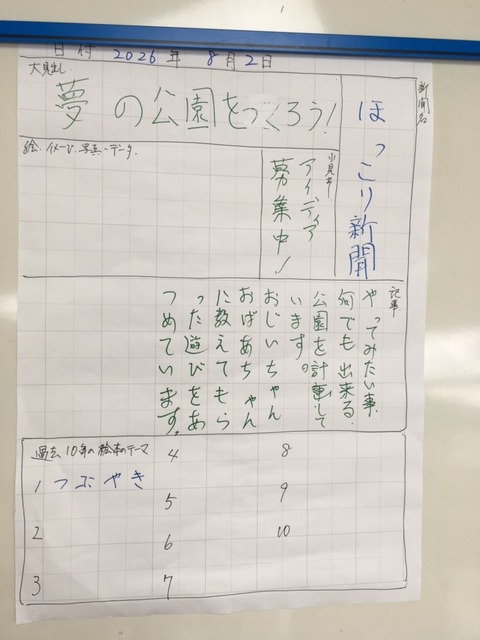 日付 2026年 8月2日
大見出し
夢の公園をつくろう!
新聞名
ほっこり新聞
絵・イメージ・写真・データ
小見出し
アイディア
募集中!
記事
やってみたい事、
何でも出来る
公園を計画して
います。
おじいちゃん
おばあちゃん
に教えてもら
った遊びをあ
つめています。
過去10年の絵本のテーマ
1 つぶやき
2
3
4
5
6
7
8
9
10